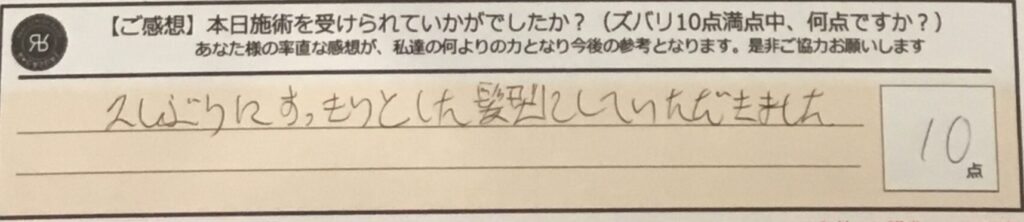 【ご感想】本日施術を受けられていかがでしたか？（ズバリ10点満点中、何点ですか？）
あなた様の率直な感想が、私達の何よりの力となり今後の参考となります。是非ご協力お願いします
久しぶりにすっきりとした髪型にしていただきました
10点